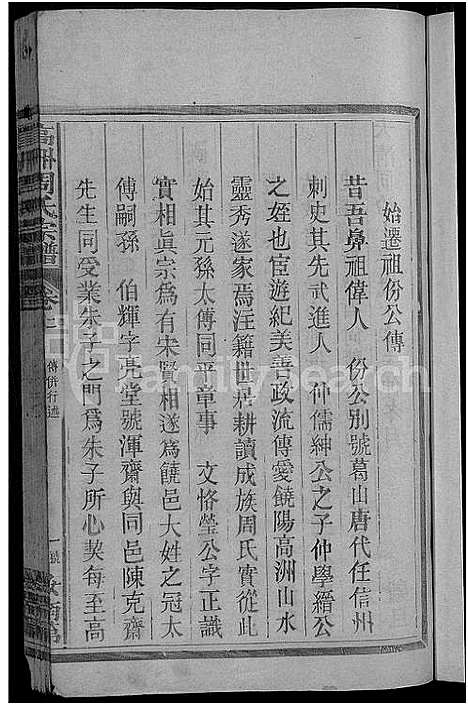 始遷祖份公傳
昔吾鼻祖偉人 份公別號葛山唐代任信州
刺史其先武進人 仲儒紳公之子仲學縉公
之姪也宦遊紀美善政流傳愛饒陽高洲山水
靈秀遂家焉注籍世居耕讀成族周氏實從此
始其元孫太傅同平章事 文恪瑩公字正識
實相眞宗為有宋賢相遂為饒邑大姓之冠太
傅嗣孫 伯輝字亮堂號渾齋與同邑陳克齋
先生同受業朱子之門為朱子所心契每至高
高洲周氏宗譜
卷
傳併行述
一號
familysearch